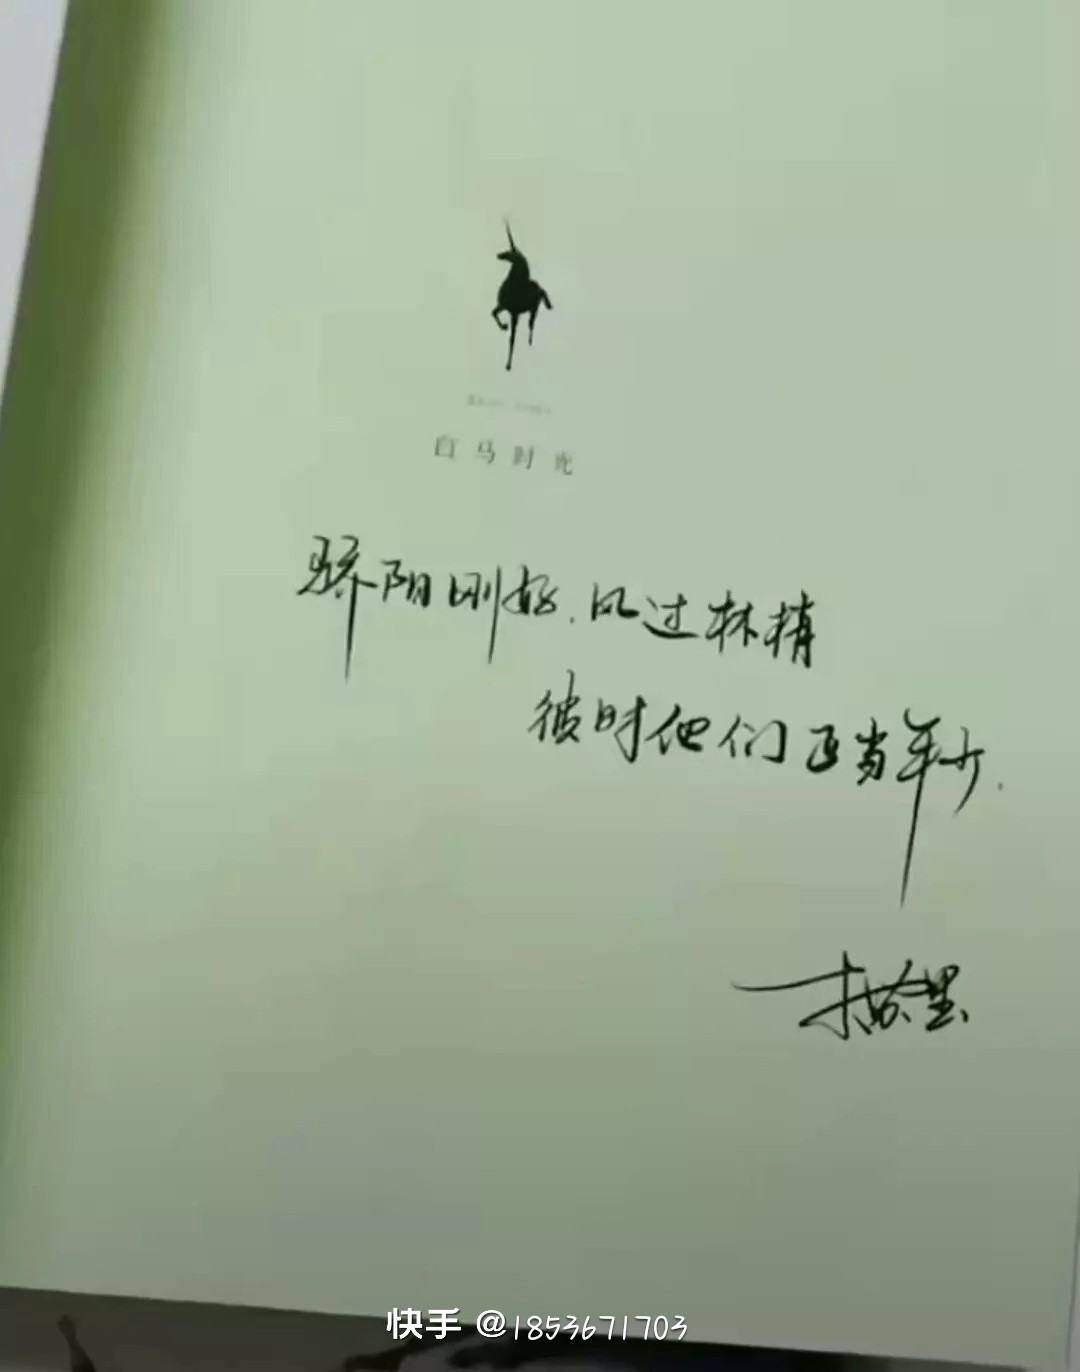 白马时光
骄阳刚好.风过林梢
彼时他们正当年少.
木苏里
快手 @1853671703